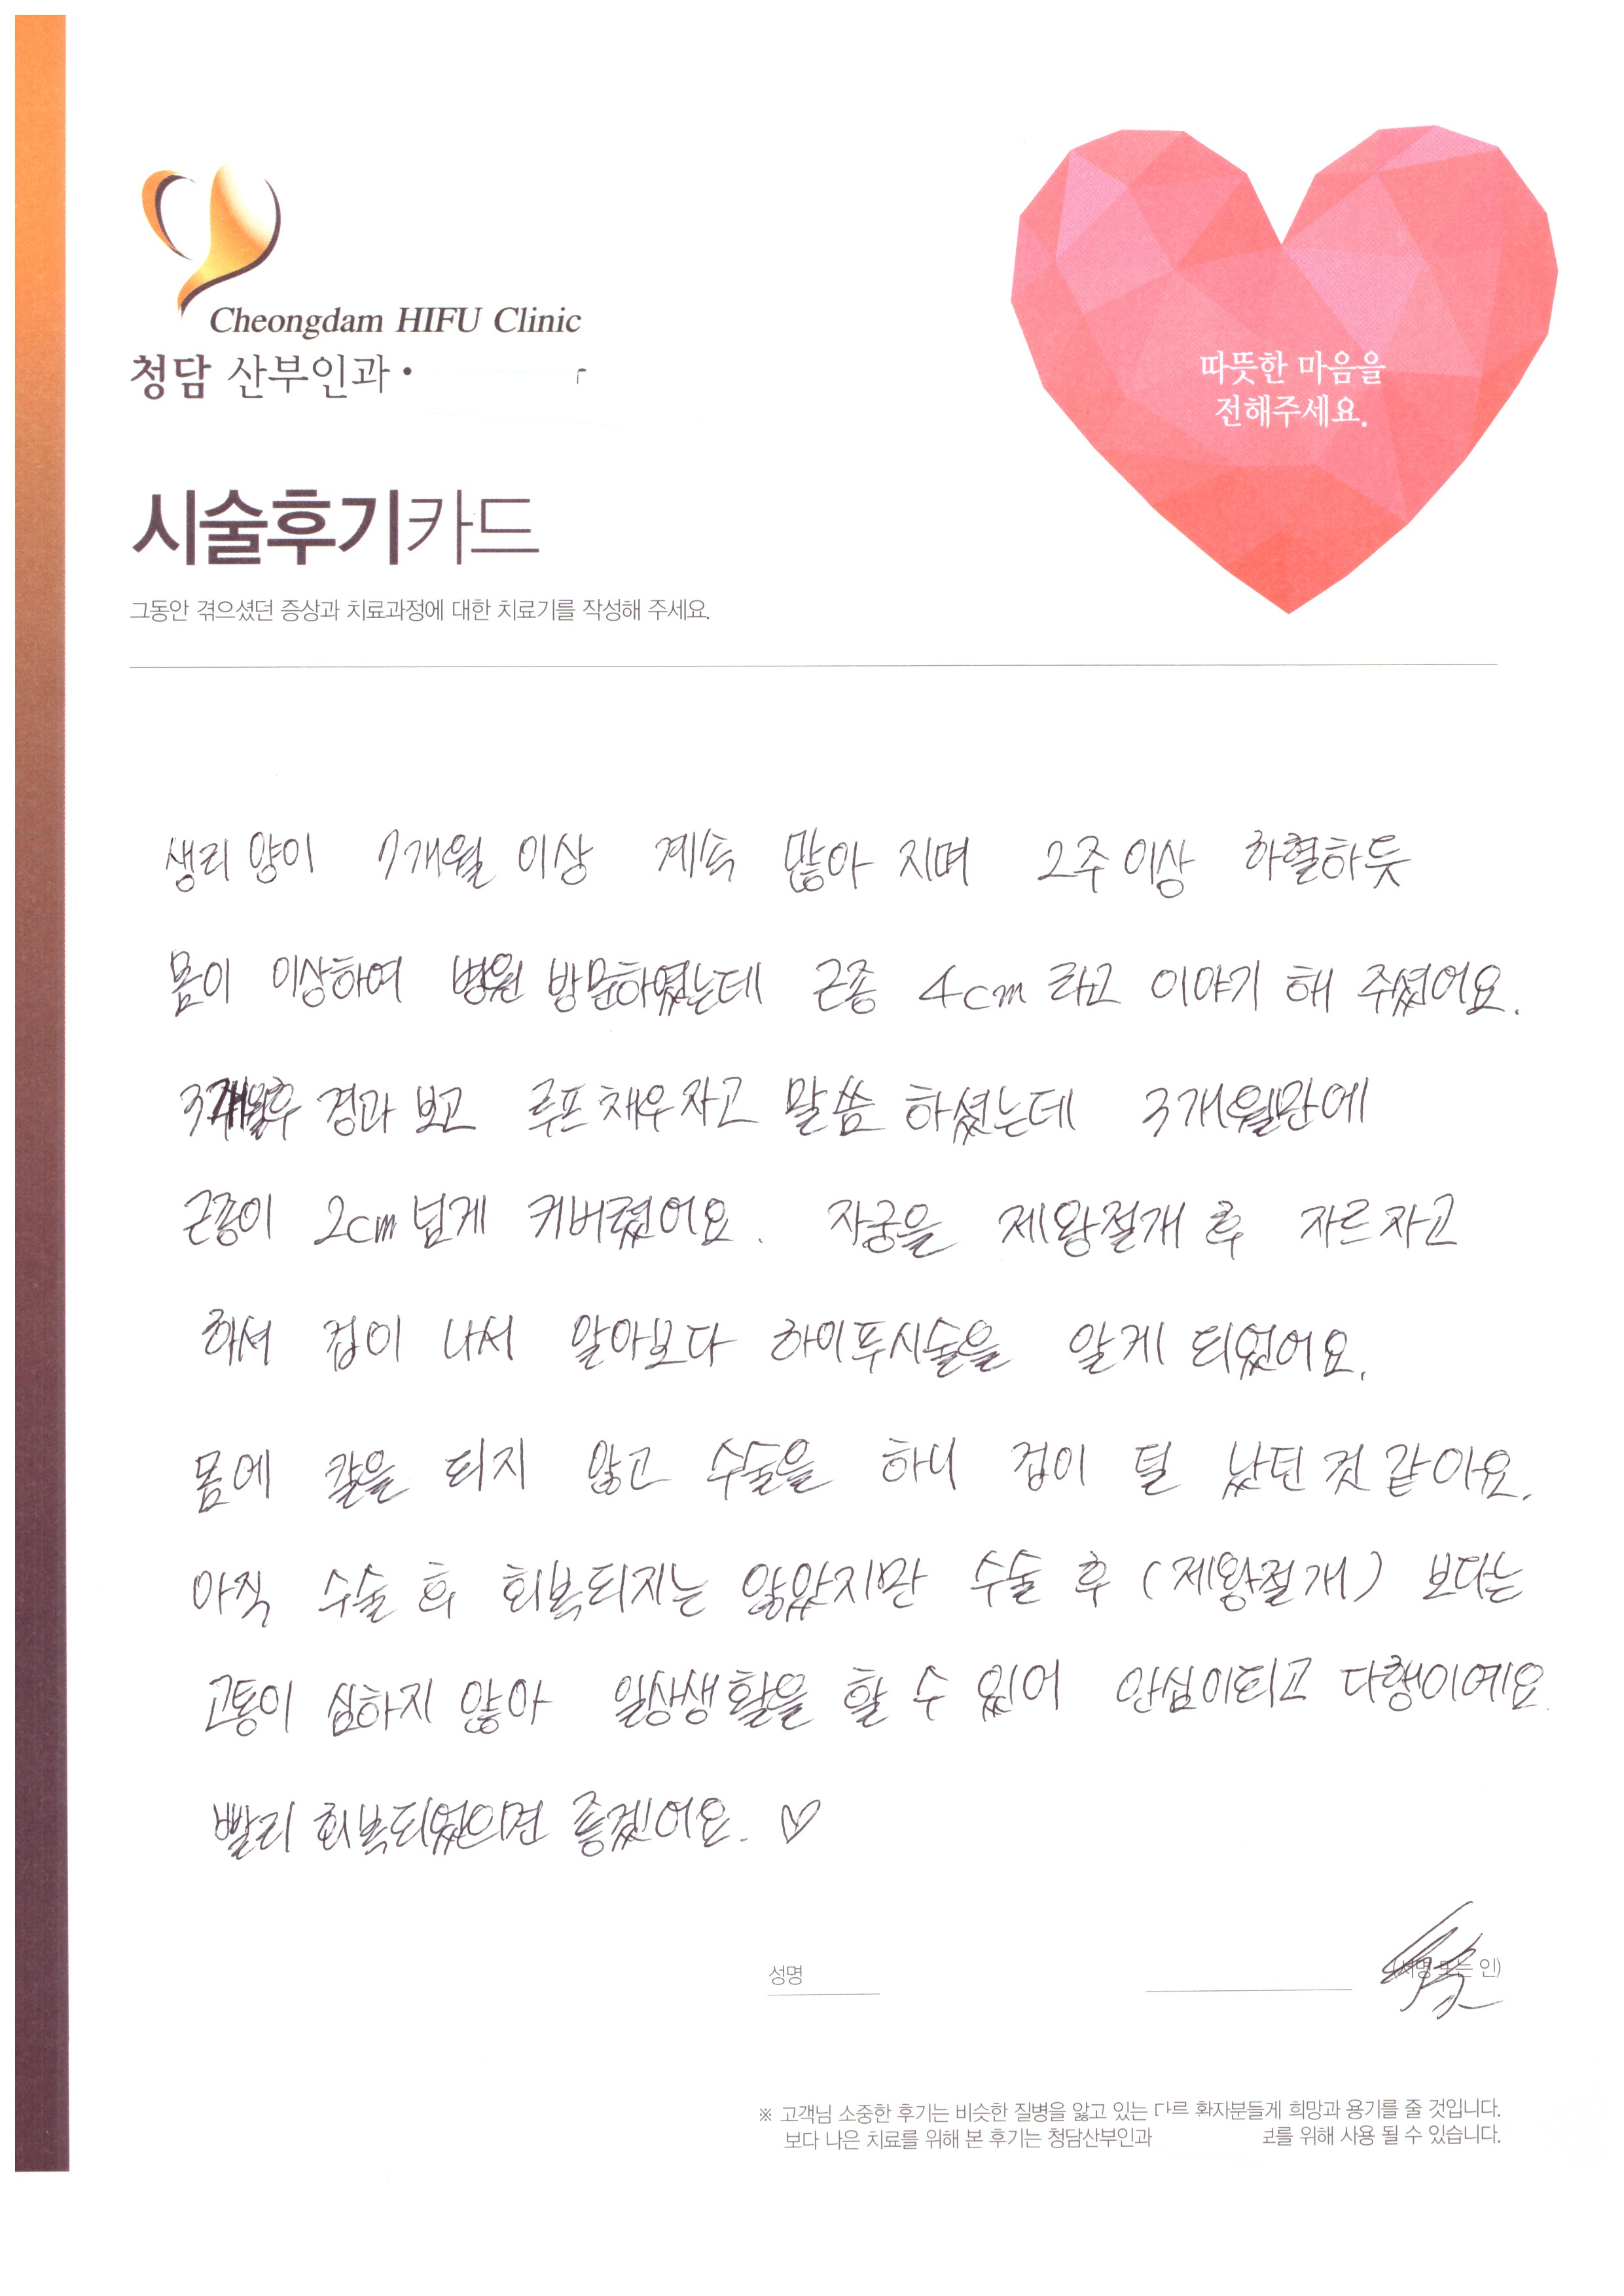 Cheongdam HIFU Clinic
청담 산부인과 •
따뜻한 마음을
전해주세요.
시술후기카드
그동안 겪으셨던 증상과 치료과정에 대한 치료기를 작성해 주세요.
생리 양이 7개월 이상 계속 많아 지며 2주 이상 하혈하듯
몸이 이상하여 병원 방문하였는데 근종 4cm 라고 이야기 해 주셨어요.
3개월후 경과 보고 루프 채우자고 말씀 하셨는데 3개월만에
근종이 2cm 넘게 커버렸어요. 자궁을 제왕절개 후 자르자고
하셔 겁이 나서 알아보다 하이푸시술을 알게 되었어요.
몸에 칼을 되지 않고 수술을 하니 겁이 덜 났던 것 같아요.
아직 수술 후 회복되지는 않았지만 수술 후 (제왕절개) 보다는
고통이 심하지 않아 일상생활을 할 수 있어 안심이되고 다행이예요.
빨리 회복되었으면 좋겠어요. ♡
성명
(서명 또는 인)
※ 고객님 소중한 후기는 비슷한 질병을 앓고 있는 다른 환자분들게 희망과 용기를 줄 것입니다.
보다 나은 치료를 위해 본 후기는 청담산부인과 를 위해 사용 될 수 있습니다.